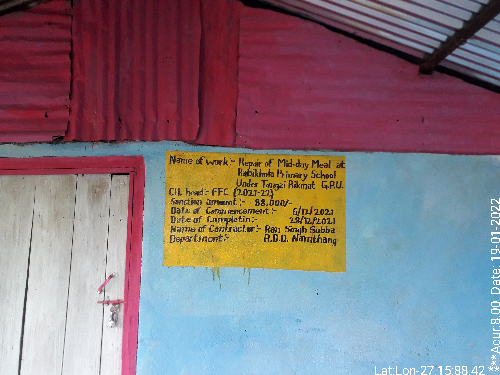 Name of work:- Repair of Mid-day Meal at
Rabikhola Primary School
Under Tangzi Rakmat G.P.U.
C/L head:- FFC (2021-22)
Sanction amount:- 88,000/-
Date of Commencement:- 6/12/2021
Date of Completin:- 29/12/2021
Name of Contractor:- Ran Singh Subba
Department:- R.D.D. Namthang
Lat Lon-27 15.88 42
***Acur:8.00 Date, 19-01-2022